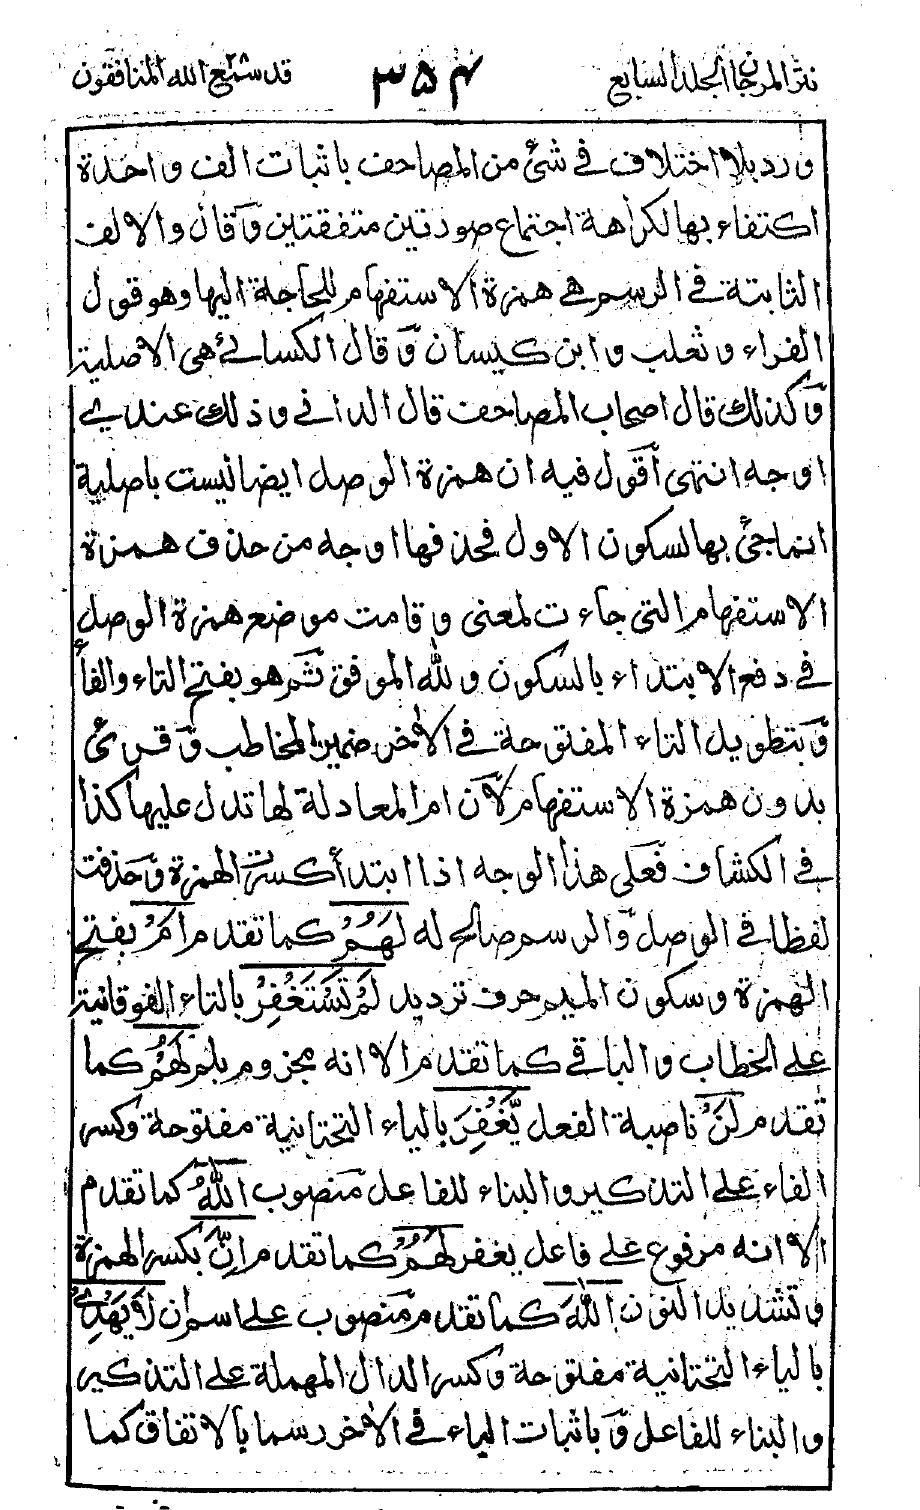 نثر المرجان الجلد السابع ٣٥٤ قد سمع الله ٢٨ المنافقون
ورد بلا اختلاف في شئ من المصاحف باثبات الف واحدة
اكتفاء بها لكراهة اجتماع صورتين متفقتين وقال والالف
الثابتة في الرسم هي همزة الاستفهام للحاجة اليها وهو قول
الفراء وثعلب وابن كيسان وقال الكسائي هي الاصلية
وكذلك قال اصحاب المصاحف قال الداني وذلك عندي
اوجه انتهى أقول فيه ان همزة الوصل ايضا ليست باصلية
انما جئ بها لسكون الاول فحذفها اوجه من حذف همزة
الاستفهام التي جاءت لمعنى وقامت موضع همزة الوصل
في دفع الابتداء بالسكون ولله الموفق ثم هو بفتح التاء والفاء
وبتطويل التاء المفتوحة في الاخر ضمير المخاطب وقرئ
بدون همزة الاستفهام لان ام المعادلة لها تدل عليها كذا
في الكشاف فعلى هذا الوجه اذا ابتدأ كسرت الهمزة وحذفت
لفظا في الوصل والرسم صالح له لَهُمْ كما تقدم اَمْ بفتح
الهمزة وسكون الميم حرف ترديد لَمْ تَسْتَغْفِرْ بالتاء الفوقانية
على الخطاب والباقي كما تقدم الا انه مجزوم بلم لَهُمْ كما
تقدم لَنْ ناصبة الفعل يَّغْفِرَ بالياء التحتانية مفتوحة وكسر
الفاء على التذكير والبناء للفاعل منصوب اللّٰهُ كما تقدم
الا انه مرفوع على فاعل يغفر لَهُمْ كما تقدم اِنَّ بكسر الهمزة
وتشديد النون اللّٰهَ كما تقدم منصوب على اسم ان لَا يَهْدِي
بالياء التحتانية مفتوحة وكسر الدال المهملة على التذكير
والبناء للفاعل وباثبات الياء في الاخر رسما بالاتفاق كما